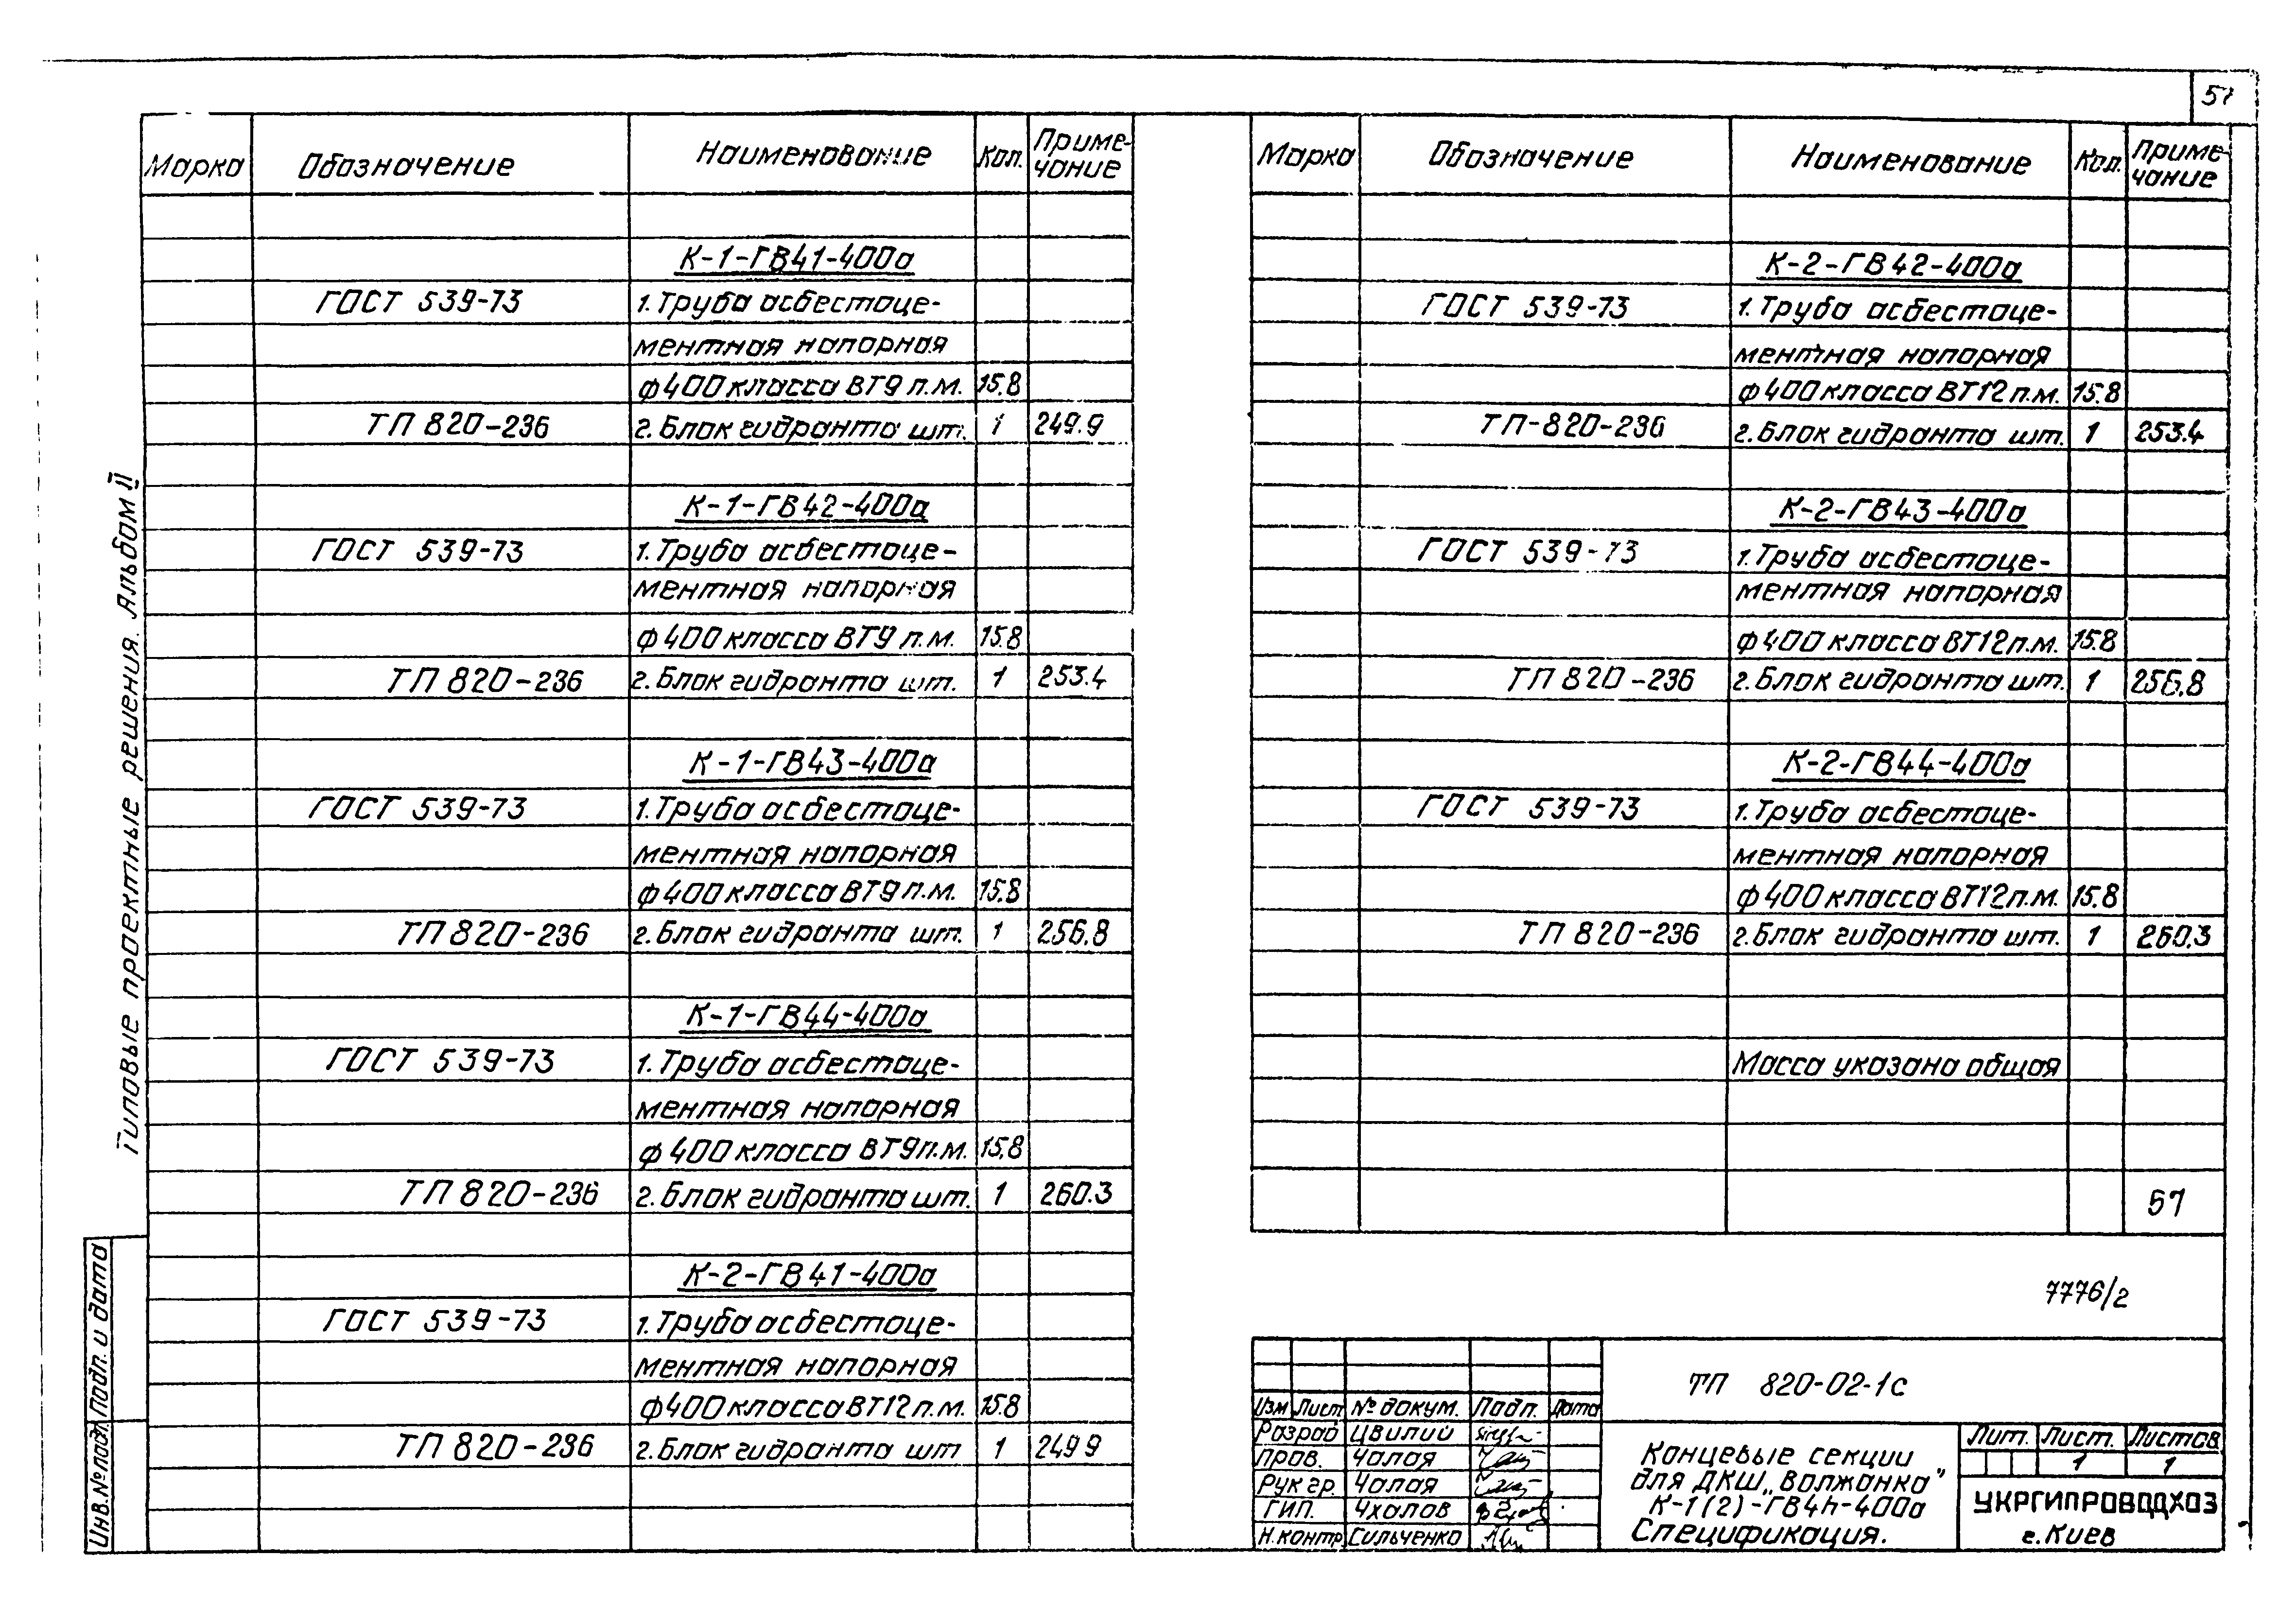 57
Марка Обозначение Наименование Кол. Приме-
чание
К-1-ГВ41-400а
ГОСТ 539-73 1. Труба асбестоце-
ментная напорная
ф400 класса ВТ9 п.м. 15.8
ТП 820-236 2. Блок гидранта шт. 1 249.9
К-1-ГВ42-400а
ГОСТ 539-73 1. Труба асбестоце-
ментная напорная
ф400 класса ВТ9 п.м. 15.8
ТП 820-236 2. Блок гидранта шт. 1 253.4
К-1-ГВ43-400а
ГОСТ 539-73 1. Труба асбестоце-
ментная напорная
ф400 класса ВТ9 п.м. 15.8
ТП 820-236 2. Блок гидранта шт. 1 256.8
К-1-ГВ44-400а
ГОСТ 539-73 1. Труба асбестоце-
ментная напорная
ф400 класса ВТ9 п.м. 15.8
ТП 820-236 2. Блок гидранта шт. 1 260.3
К-2-ГВ41-400а
ГОСТ 539-73 1. Труба асбестоце-
ментная напорная
ф400 класса ВТ12 п.м. 15.8
ТП 820-236 2. Блок гидранта шт 1 249 9
Марка Обозначение Наименование Кол. Приме-
чание
К-2-ГВ42-400а
ГОСТ 539-73 1. Труба асбестоце-
ментная напорная
ф400 класса ВТ12 п.м. 15.8
ТП-820-236 2. Блок гидранта шт. 1 253.4
К-2-ГВ43-400а
ГОСТ 539-73 1. Труба асбестоце-
ментная напорная
ф400 класса ВТ12 п.м. 15.8
ТП 820-236 2. Блок гидранта шт. 1 256.8
К-2-ГВ44-400а
ГОСТ 539-73 1. Труба асбестоце-
ментная напорная
ф400 класса ВТ12 п.м. 15.8
ТП 820-236 2. Блок гидранта шт. 1 260.3
Масса указана общая
57
7776/2
Типовые проектные решения. Альбом II
Инв. № подл. Подп. и дата
Изм Лист № докум. Подп. Дата
Разраб Цвилий
Пров. Чалая
Рук гр. Чалая
ГИП. Чхалов
Н. контр. Сильченко
ТП 820-02-1с
Концевые секции
для ДКШ „Волжанка"
К-1(2)-ГВ4h-400а
Спецификация.
Лит. Лист. Листов
1 1
УКРГИПРОВОДХОЗ
г. Киев